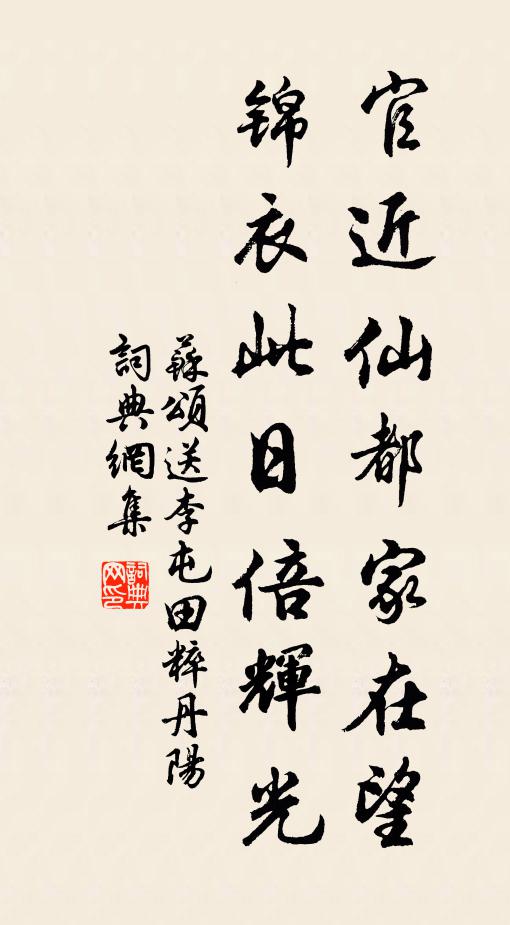 官近仙都家在望
錦衣此日倍輝光
蘇頌送李屯田粹丹陽
詞典網集
詞典网印